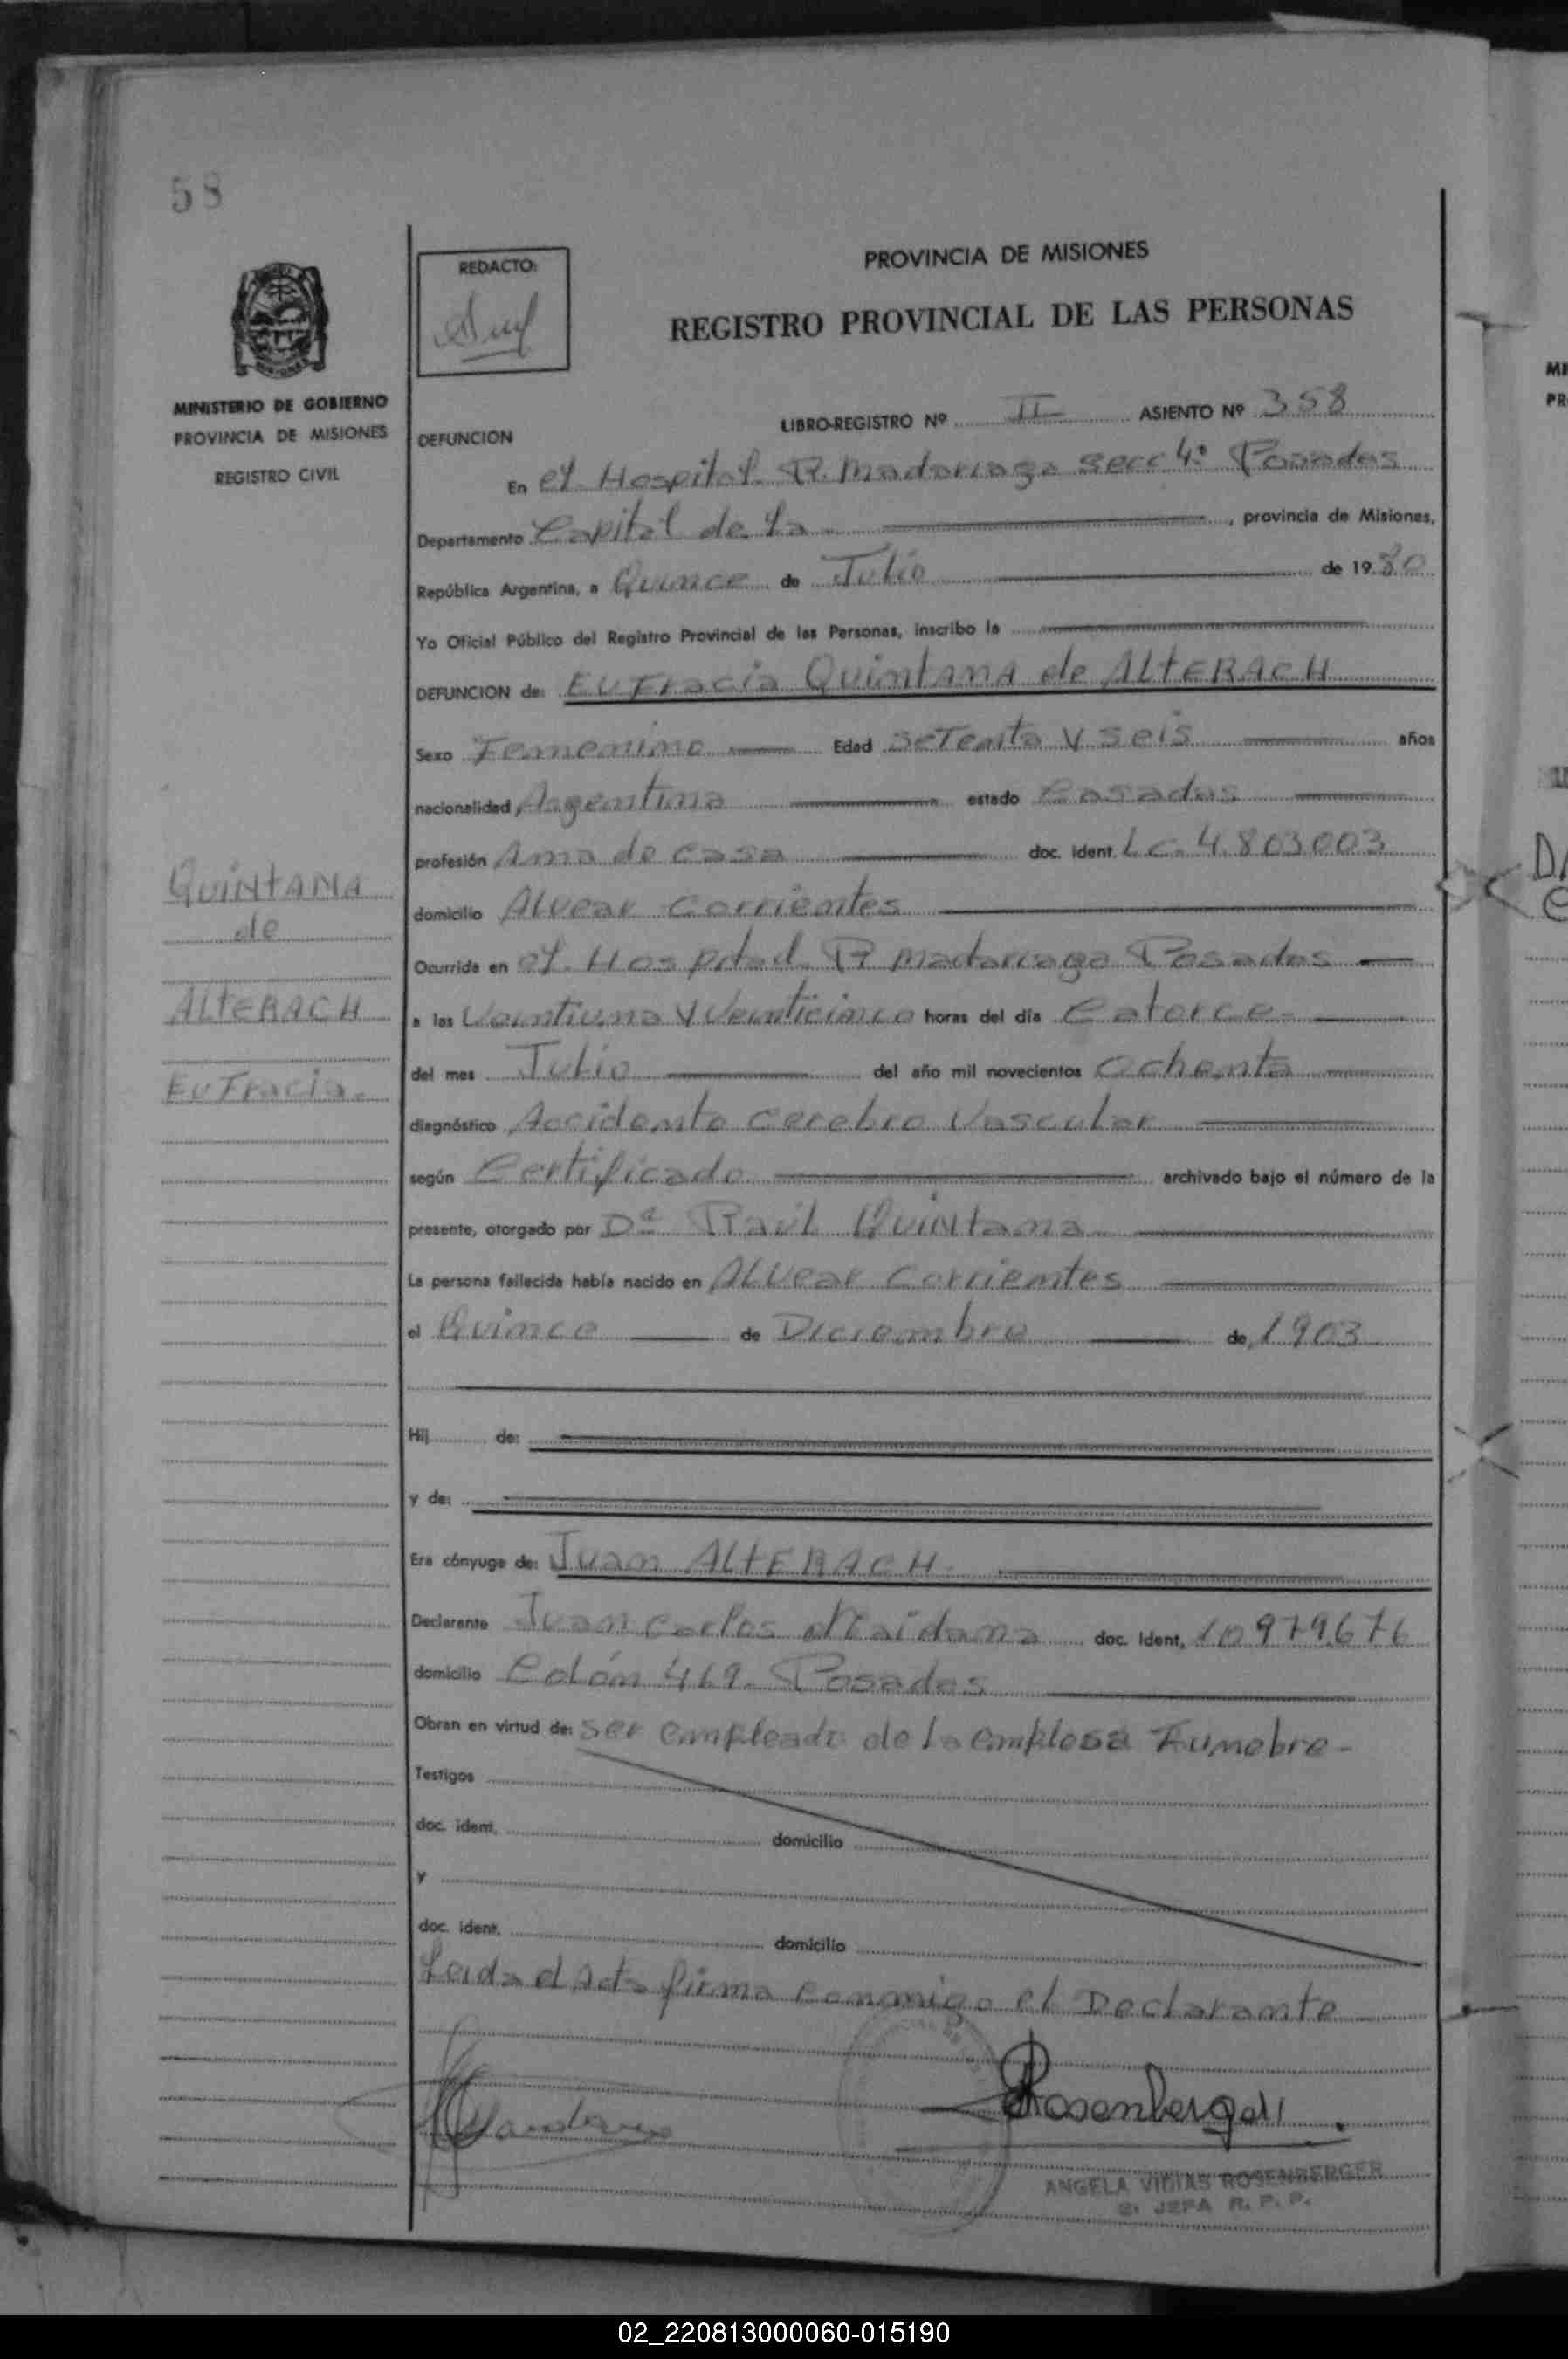 58
REDACTO:
PROVINCIA DE MISIONES
REGISTRO PROVINCIAL DE LAS PERSONAS
MINISTERIO DE GOBIERNO
PROVINCIA DE MISIONES
REGISTRO CIVIL
LIBRO-REGISTRO Nº II ASIENTO Nº 358
DEFUNCION
En el Hospital R. Madariaga secc 4º Posadas
Departamento Capital de La , provincia de Misiones,
República Argentina, a Quince de Julio de 1980
Yo Oficial Público del Registro Provincial de las Personas, inscribo la
DEFUNCION de: EuFracia QuintANA de ALtERACH
Sexo Femenino Edad SeTenta y seis años
nacionalidad Argentina estado Casada
profesión Ama de casa doc. ident. L.C. 4.803003
QuiNtANA
de
ALtERACH
EuFracia.
domicilio Alvear Corrientes
Ocurrida en el Hospital R Madariaga Posadas
a las Veintiuna y Veinticinco horas del día Catorce
del mes Julio del año mil novecientos Ochenta
diagnóstico Accidente Cerebro Vascular
según Certificado archivado bajo el número de la
presente, otorgado por Raúl QuiNtana
La persona fallecida había nacido en ALvear Corrientes
el Quince de Diciembre de 1903
Hij de:
y de:
Era cónyuge de: Juan ALtERACH
Declarante Juan Carlos Maidana doc. Ident, 10979676
domicilio Colón 469- Posadas
Obran en virtud de: ser empleado de la emplesa Funebre-
Testigos
doc. ident. domicilio
y
doc. ident. domicilio
Leida el Acta firma conmigo el Declarante
Rosenberger
ANGELA VIDIAS ROSENBERGER
JEFA R. P. P.
02_220813000060-015190